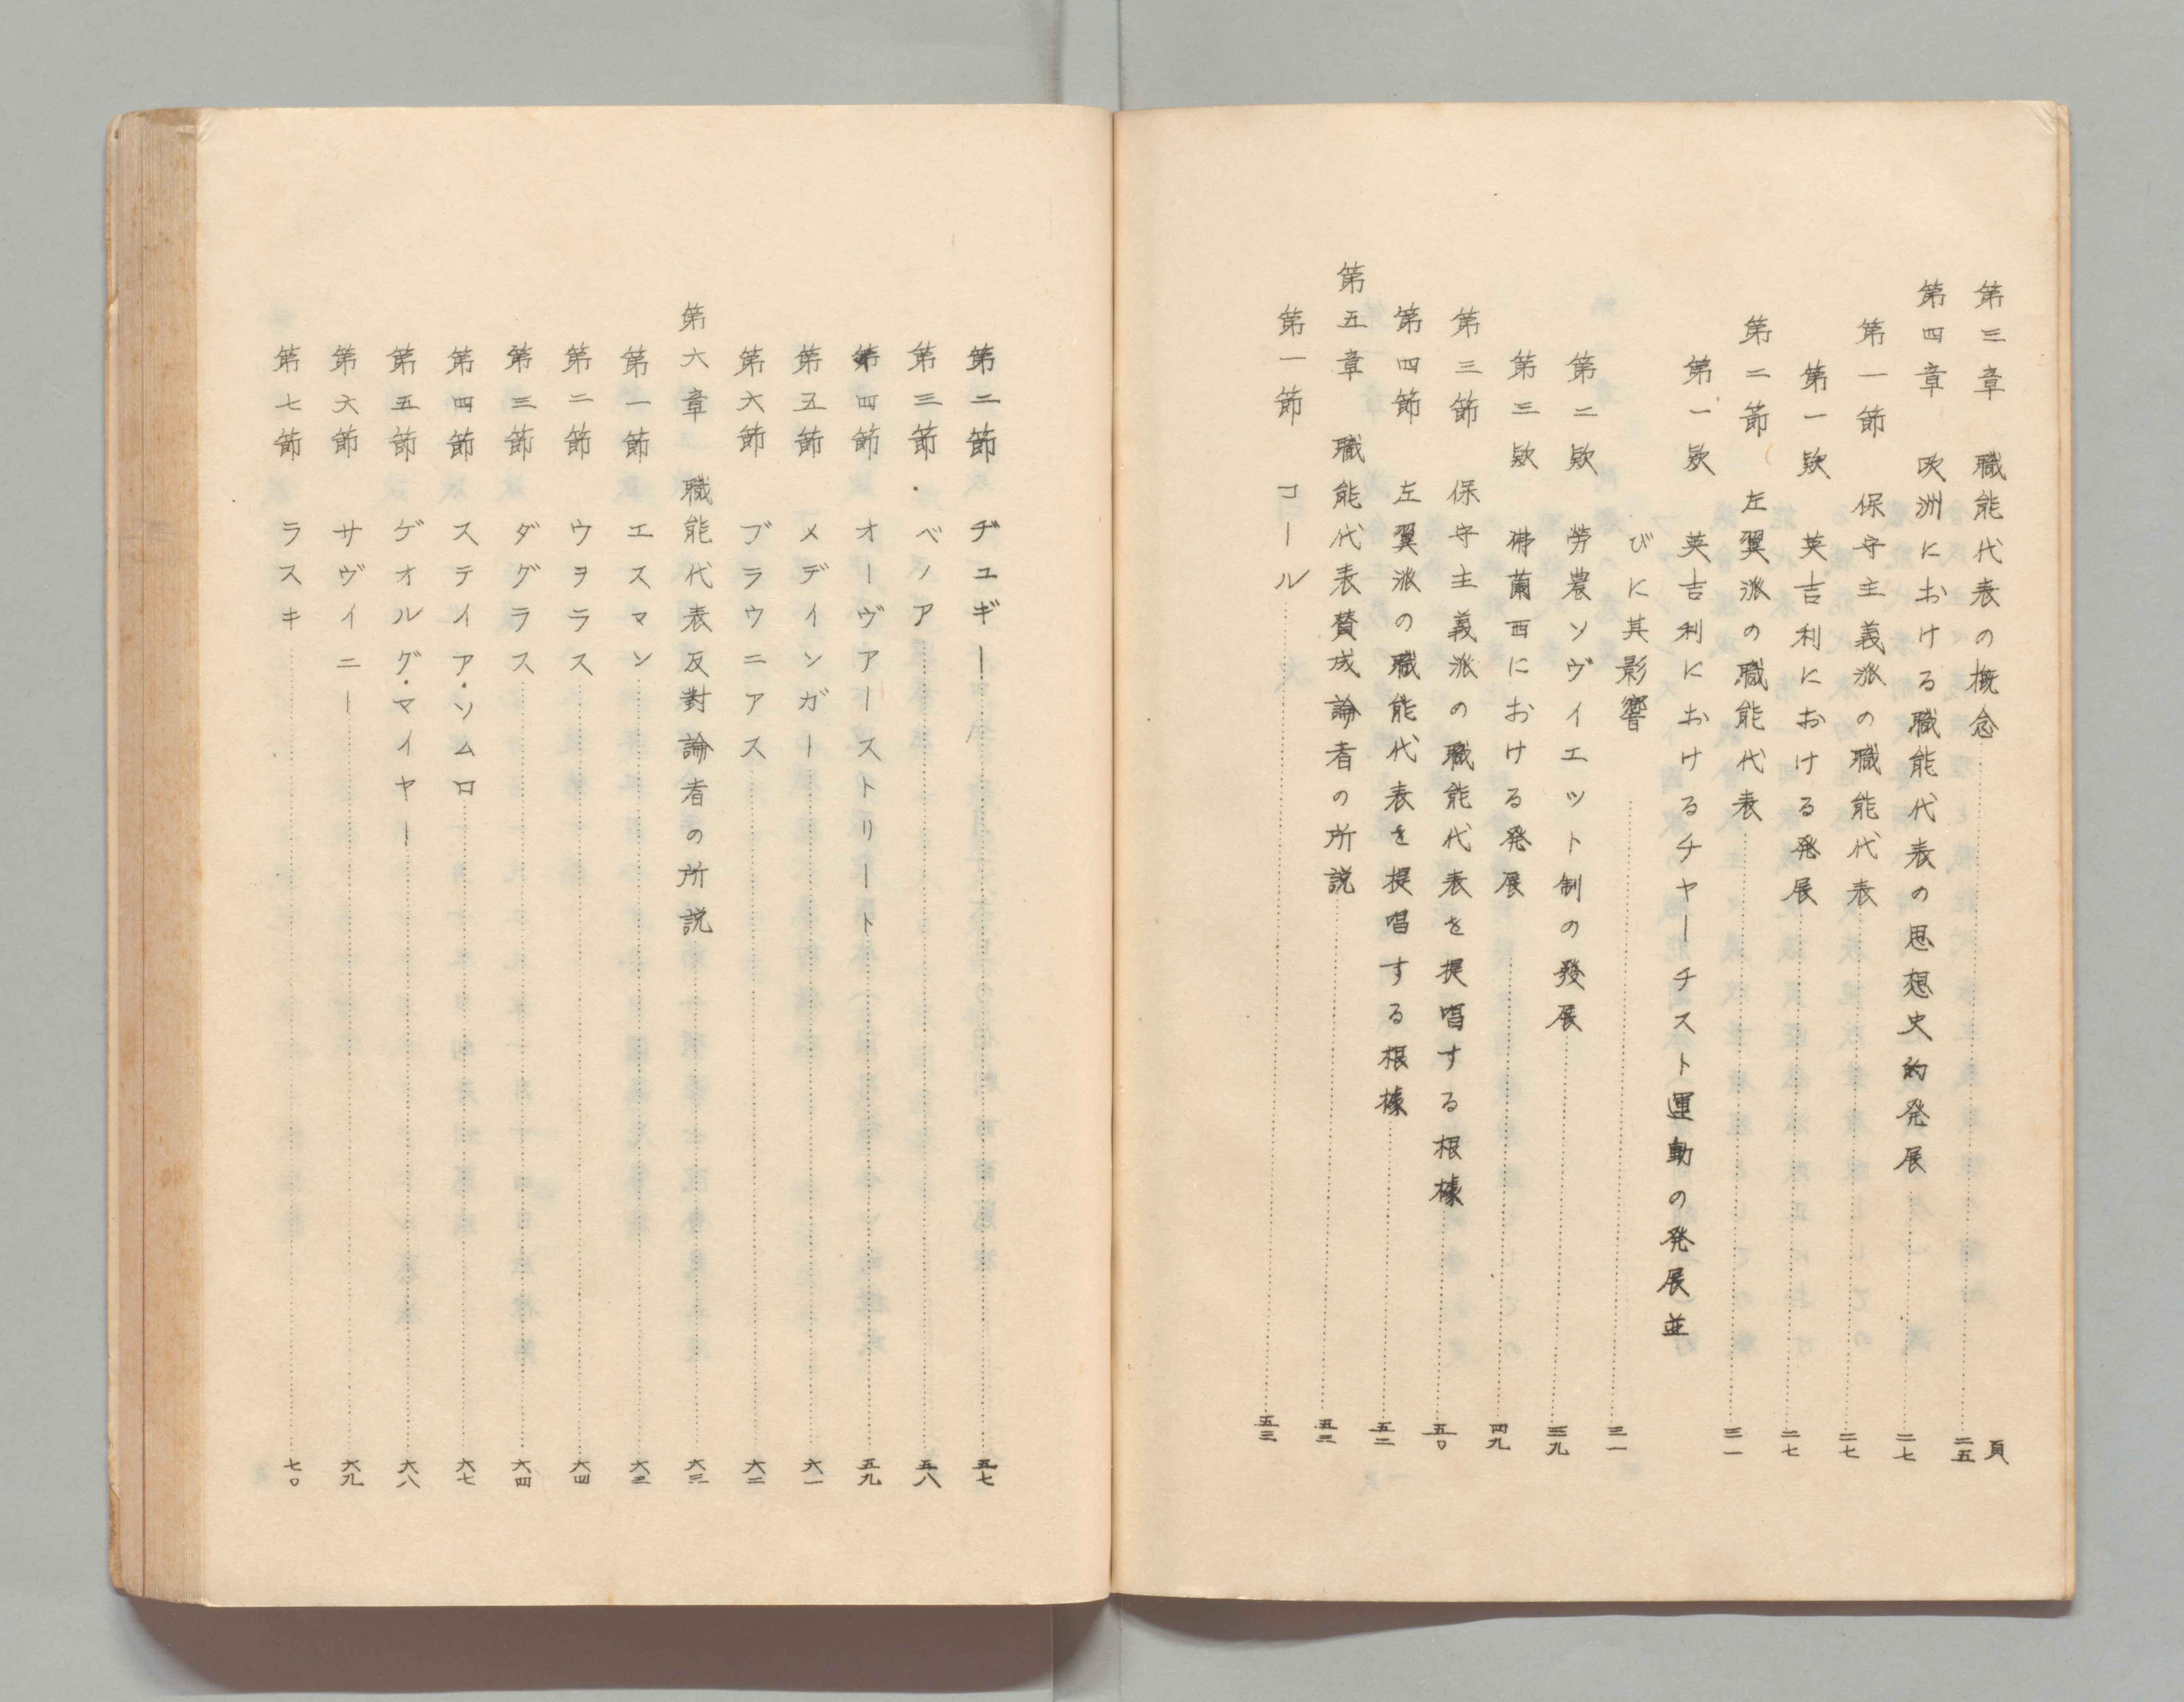 頁
第三章 職能代表の概念………二五
第四章 欧洲における職能代表の思想史的発展………二七
第一節 保守主義派の職能代表………二七
第一欵 英吉利における発展………二七
第二節 左翼派の職能代表………三一
第一欵 英吉利におけるチヤーチスト運動の発展並
びに其影響………三一
第二欵 労農ソヴイエツト制の發展………三九
第三欵 佛蘭西における発展………四九
第三節 保守主義派の職能代表を提唱する根據………五〇
第四節 左翼派の職能代表を提唱する根據………五二
第五章 職能代表賛成論者の所説………五三
第一節 コール………五三
第二節 ヂユギー………五七
第三節 ベノア………五八
第四節 オーヴアーストリート………五九
第五節 メデインガー………六一
第六節 ブラウニアス………六二
第六章 職能代表反對論者の所説………六三
第一節 エスマン………六三
第二節 ウヲラス………六四
第三節 ダグラス………六四
第四節 ステイア・ソムロ………六七
第五節 ゲオルグ・マイヤー………六八
第六節 サヴイニー………六九
第七節 ラスキ………七〇